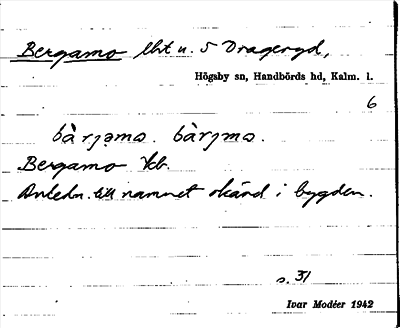 Bergamo lht u. 5 Drageryd,
Högsby sn, Handbörds hd, Kalm. l.
6
bàrjəmo. bàrjmo.
Bergamo kb.
Anledn. till namnet okänd i bygden.
s. 31
Ivar Modéer 1942